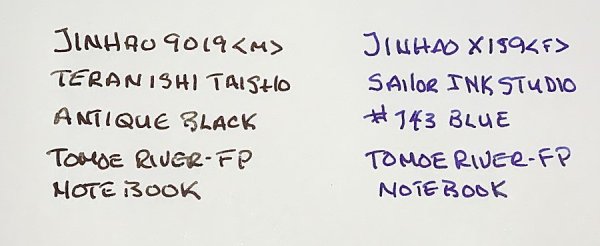 JINHAO 9019 <M>
TERANISHI TAISHO
ANTIQUE BLACK
TOMOE RIVER-FP
NOTEBOOK
JINHAO X159 <F>
SAILOR INK STUDIO
#743 BLUE
TOMOE RIVER-FP
NOTEBOOK